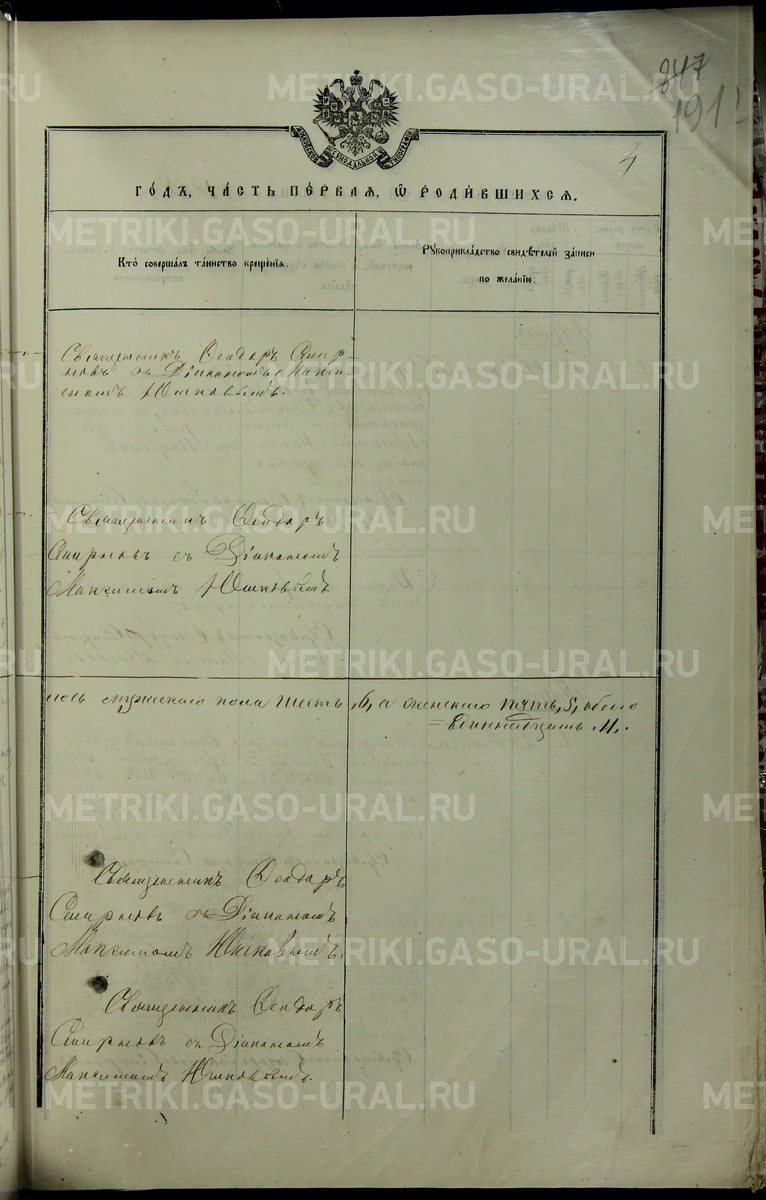 METRIKI.GASO-URAL.RU
847
191
4
МОСКОВСКОЙ СѴНОДАЛЬНОЙ ТИПОГРАФІИ
ГО́ДЪ, ЧА́СТЬ ПЕ́РВАЯ, Ѡ҆ РОДИ́ВШИХСЯ.
Кто̀ соверша́лъ та́инство креще́нія.
Рꙋкоприкла́дство свидѣ́телей за́писи
по жела́нію.
Священникъ Ѳеодоръ Смир-
новъ съ Діакономъ Макси-
момъ Юшковымъ.
Священникъ Ѳеодоръ
Смирновъ съ Діакономъ
Максимомъ Юшковымъ.
лось мужескаго пола шесть, 6, а женскаго пять, 5, обоего
= Единнадцать 11,.
Священникъ Ѳеодоръ
Смирновъ съ Діакономъ
Максимомъ Юшковымъ.
Священникъ Ѳеодоръ
Смирновъ съ Діакономъ
Максимомъ Юшковымъ.